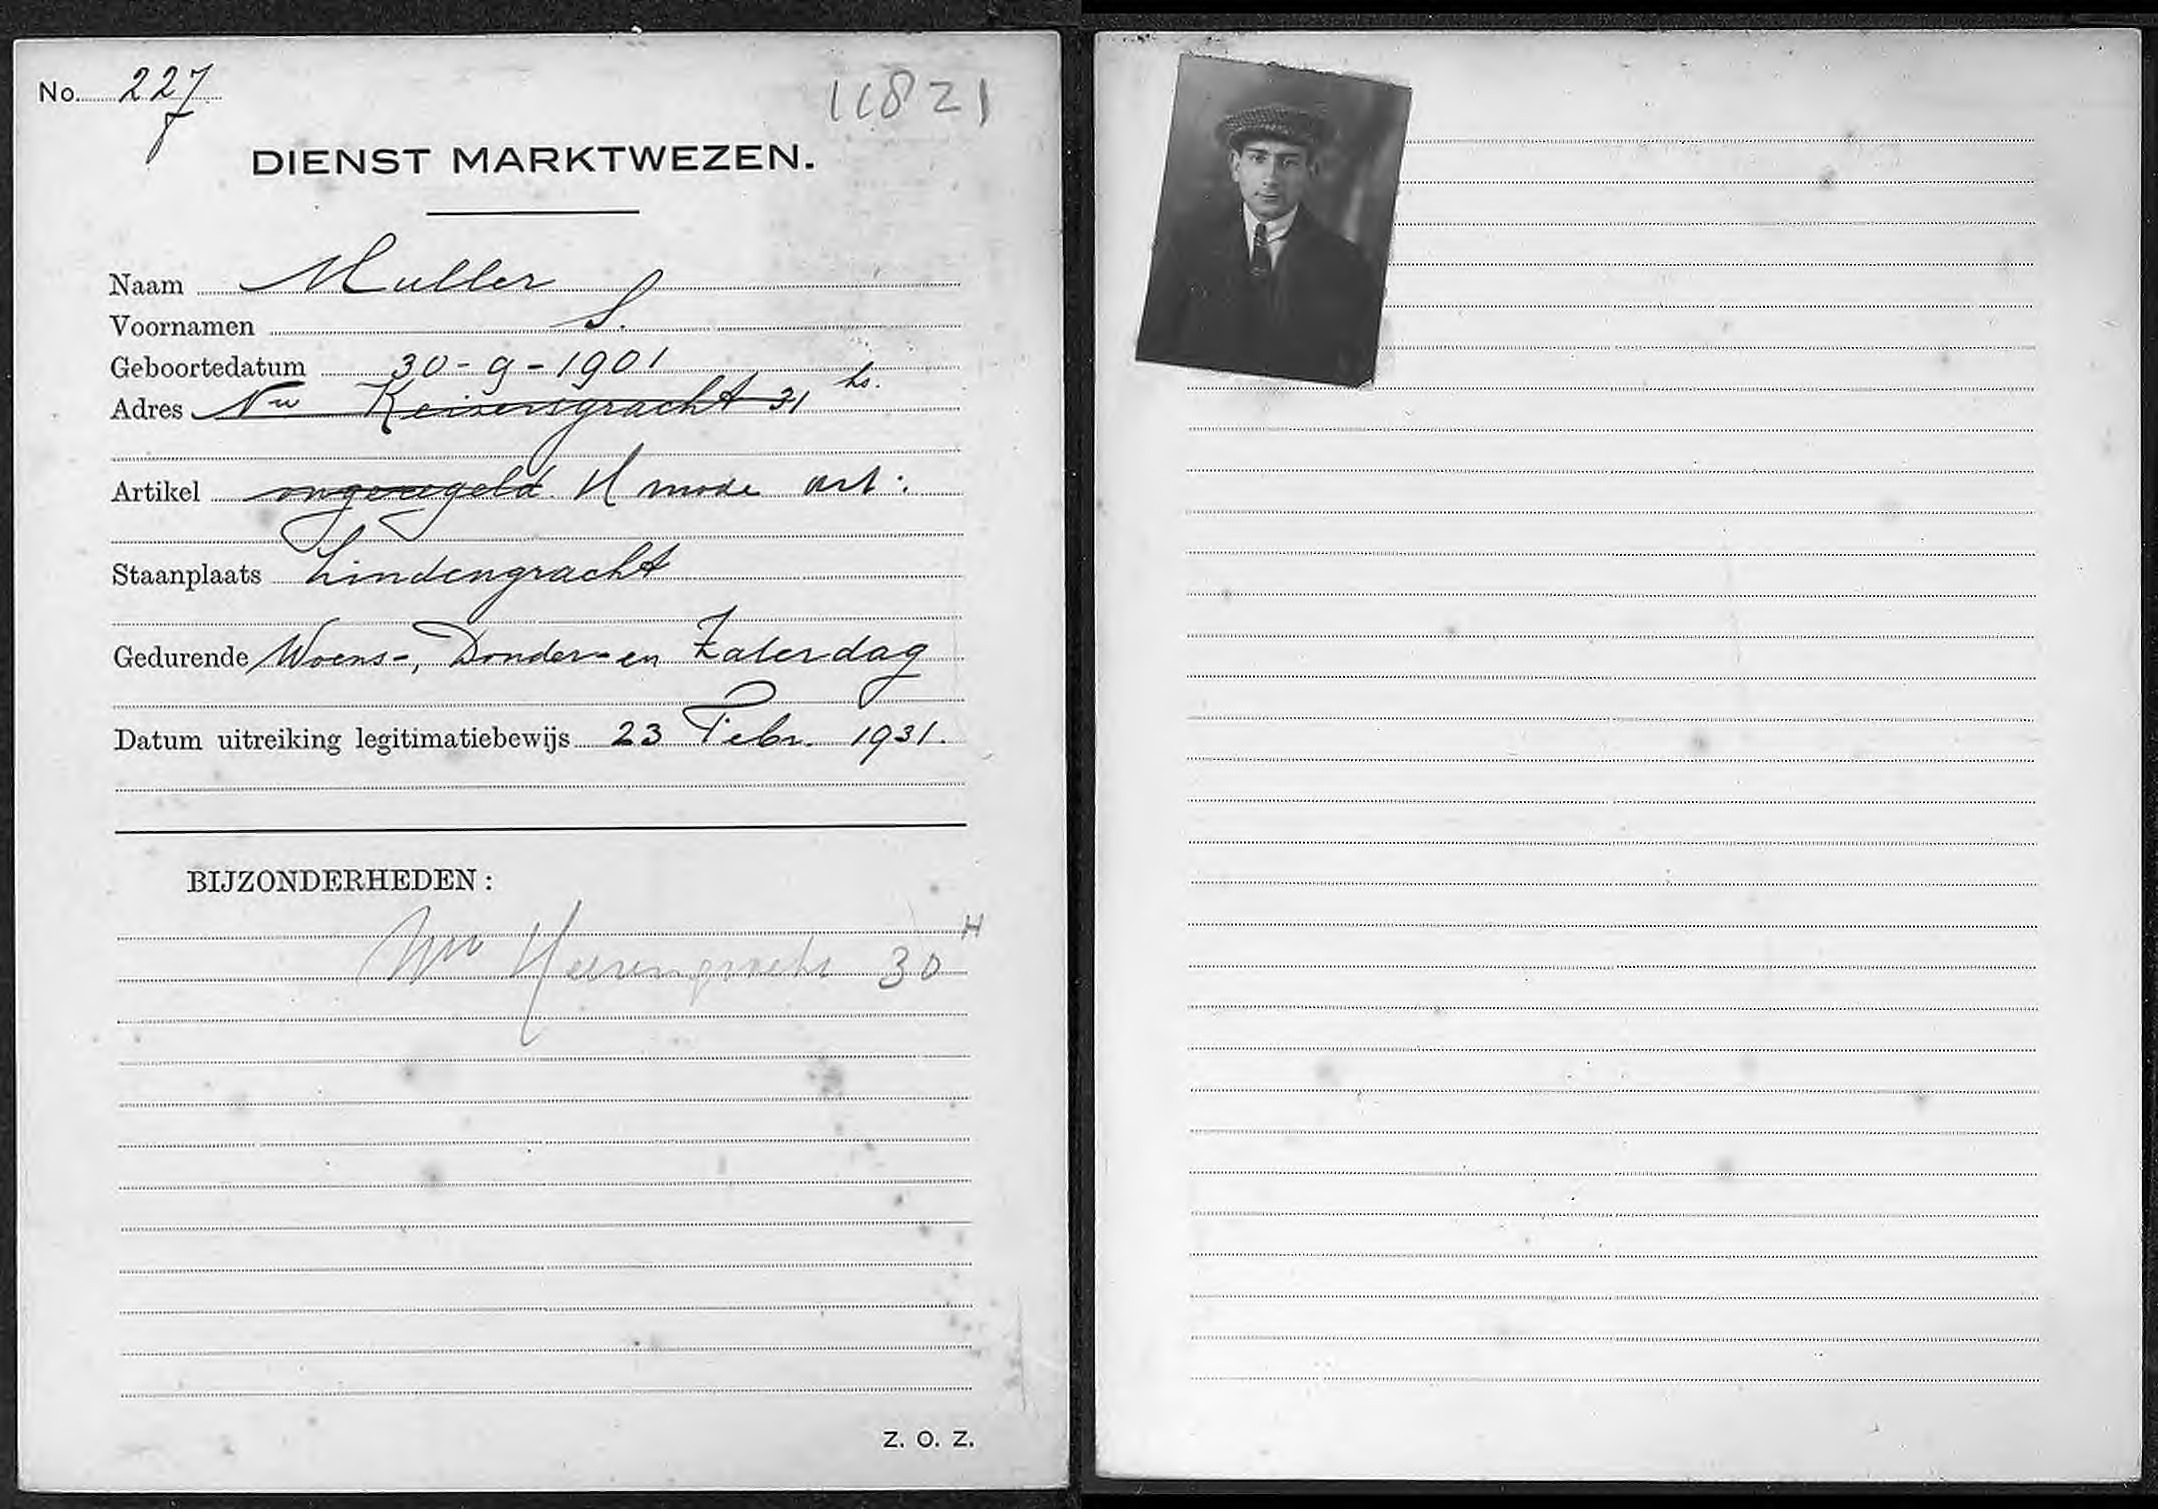 No. 227
11821
DIENST MARKTWEZEN.
Naam Muller
Voornamen S.
Geboortedatum 30-9-1901
Adres Nw Keizersgracht 31 hs.
Artikel ongeregeld. H mode art.
Staanplaats Lindengracht
Gedurende Woens-, Donder- en Zaterdag
Datum uitreiking legitimatiebewijs 23 Febr. 1931.
BIJZONDERHEDEN:
Nw Heerengracht 30 H
Z. O. Z.